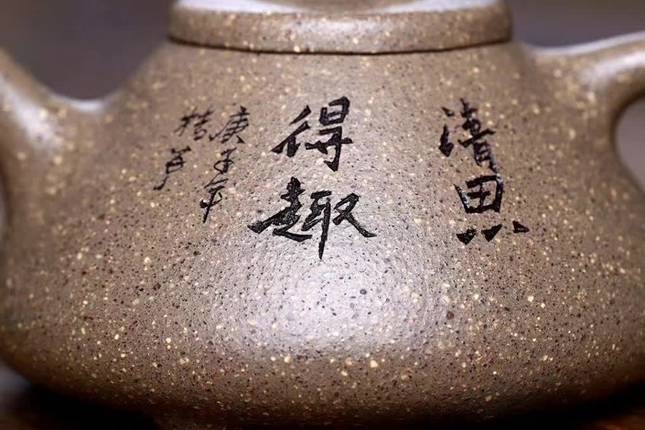 清思
得趣
庚子年
桔